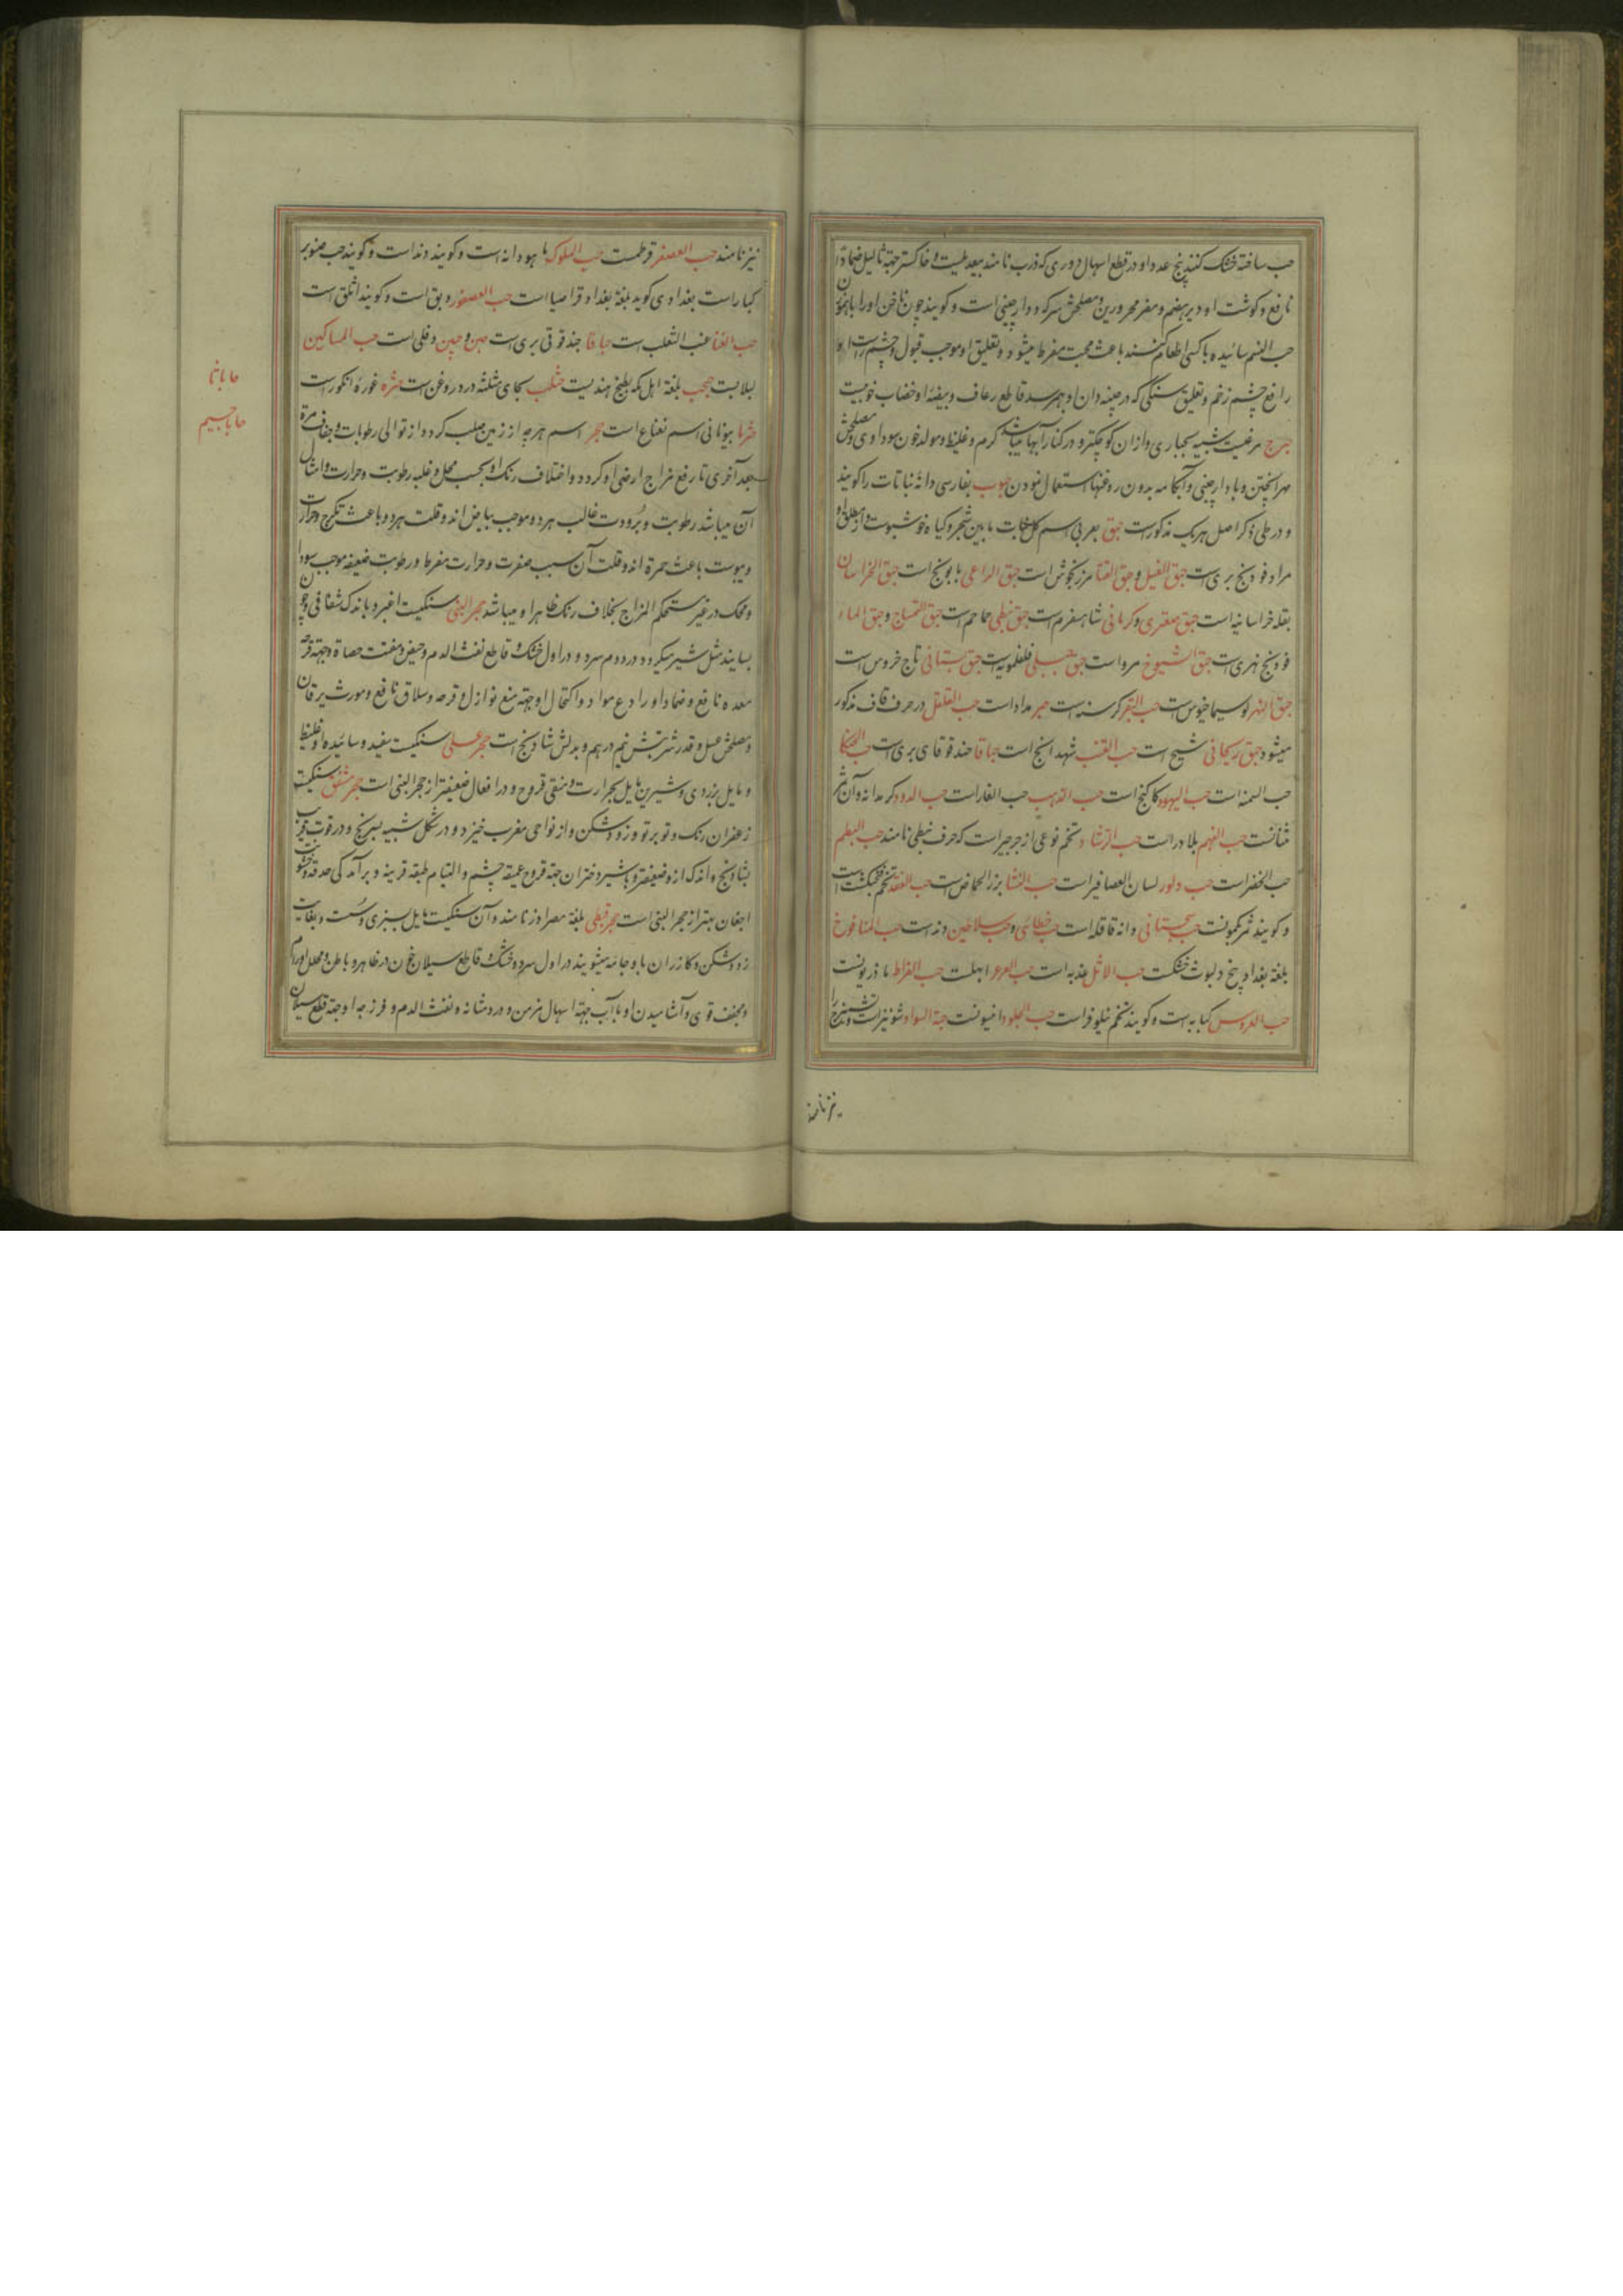 حب ساخته خشک کنند پنج عدد او در قطع اسهال دوری که ذرب نامند بیعدیلست و خاکستر جهة ثالیل ضمادا
نافع و کوشت او دیر هضم و مضر محرورین و مصلحش سرکه و دارچینی است و کویند چون ناخن او را با همون
حب النیم سائیده با کسی اطعام کنند باعث محبت مفرط میشود و تعلیق او موجب قبول و چشم راست او
رافع چشم زخم و تعلیق سنگی که در چینه دان او بهم رسد قاطع رعاف و بیضهٔ او خضاب خوبیست
حبرج مرغیست شبیه بحباری و از ان کوچکتر و در کنار آبها میباشد کرم و غلیظ و مولد خون سوداوی و مصلحش
مهرا پختن و با دارچینی و آبکامه بدون روغنها استعمال نمودن حبوب بفارسی دانهٔ نباتات را کویند
و در طی ذکر اصل هر یک مذکور است حبق بعربی اسم کل نبات مابین شجر و کیاه خوشبوست و از مطلق او
مراد فودنج بری است حبق الفیل و حبق الفتا مرزنجوش است حبق الراعی بابونج است حبق الخراسان
بقله خراسانیه است حبق صعتری و کرمانی شاهسفرم است حبق نبطی حماحم است حبق التمساح و حبق الماء
فودنج نهری است حبق الشیوخ مرو است حبق جبلی فلفلمویه است حبق بستانی تاج خروس است
حبق النهر لوسیماخیوس است حب البقر کرسنه است حبر مداد است حب القلقل در حرف قاف مذکور
میشود حبق ریحانی شیح است حب القنب شهدانج است حباقا حندقوقای بری است حب الضکا
حب السمنه است حب الیهود کاکنج است حب الذهب حب الغار است حب الدود کرمدانه و آن ثمر
مثنانست حب الفهم بلادر است حب الرشاد تخم نوعی از جرجیر است که حرف نبطی نامند حب البطم
حب الخضرا است حب دلور لسان العصافیر است حب النشا بزر الحماض است حب الفقد تخم فنجنکشت است
و کویند ثمر کموبست حب سجستانی دانه قاقله است حب خطائی و حب سلاطین دند است حب المنافوخ
بلغة بغداد پنج دلبوث خشکست حب الاثل عذبه است حب العرعر ابهلست حب القراط مازریونست
حب العروس کبابه است و کویند تخم نیلوفر است حب الجلود انیسونست حبة السوداء شونیز است و تشمیزج را
نیز نامند
نیز نامند حب العصفر قرطمست حب الملوک ماهودانه است و کویند دند است و کویند حب صنوبر
کبار است بغدادی کوید بلغة بغداد قراصیا است حب العصفور دبق است و کویند اثلق است
حب الفنا عنب الثعلب است حباقا حندقوقی بری است حبن و حبین دفلی است حب المساکین
لبلابست حبحب بلغة اهل مکه بطیخ هندیست حثلب بجای مثلثه دردر روغن است حثره غورهٔ انکور است
حثرما بیونانی اسم نعناع است حجر اسم هرچه از زمین صلب کردد و از توالی رطوبات و جفاف مرة
بعد آخری تا رفع مزاج ارضی او کردد و اختلاف رنک او بحسب محل و غلبه رطوبت و حرارت و امثال
آن میباشد رطوبت و برودت غالب هر دو موجب بیاض اند و قلت هر دو باعث تکرج و حرارت
و یبوست باعث حمرة اند و قلت آن سبب صفرت و حرارت مفرط و رطوبت ضعیفه موجب سواد
و محک در غیر مستحکم المزاج بخلاف رنک ظاهر او میباشد حجر البنی سنکیست اغبر و باندک شفافی و چون
بسایند مثل شیر میکردد در دوم سرد و در اول خشک و قاطع نفث الدم و حیض و مفتت حصاة و جهة قرحه
معده نافع و ضماد او رادع مواد و اکتحال او جهة منع نوازل و قرحه و سلاق نافع و مورث یرقان
و مصلحش عسل و قدر شربتش نیم درهم و بدلش شادنج است حجر عسلی سنکیست سفید و سائیده او غلیظ
و مایل بزردی و شیرین مایل بحرارت و منقی قروح و در افعال ضعیفتر از حجر البنی است حجر مشقق سنکیست
زعفران رنک و توبرتو و زودشکن و از نواحی مغرب خیزد و در شکل شبیه بسرنج و در قوت قریب
بشادنج و اندک ازو ضعیفتر و با شیر دختران جهة قروح عمیقه چشم و التیام طبقه قرنیه و برآمدکی حدقه و خشونت
اجفان بهتر از حجر البنی است حجر قبطی بلغة مصر ادز نامند و آن سنکیست مایل بسبزی و سست و بغایت
زودشکن و کازران باو جامه میشویند در اول سرد و خشک و قاطع سیلان خون در ظاهر و باطن و محلل اورام
و مجفف قوی و آشامیدن او با آب جهة اسهال مزمن و درد مثانه و نفث الدم و فرزجه او جهة قطع سیلان
حابانما
حاباجسیم